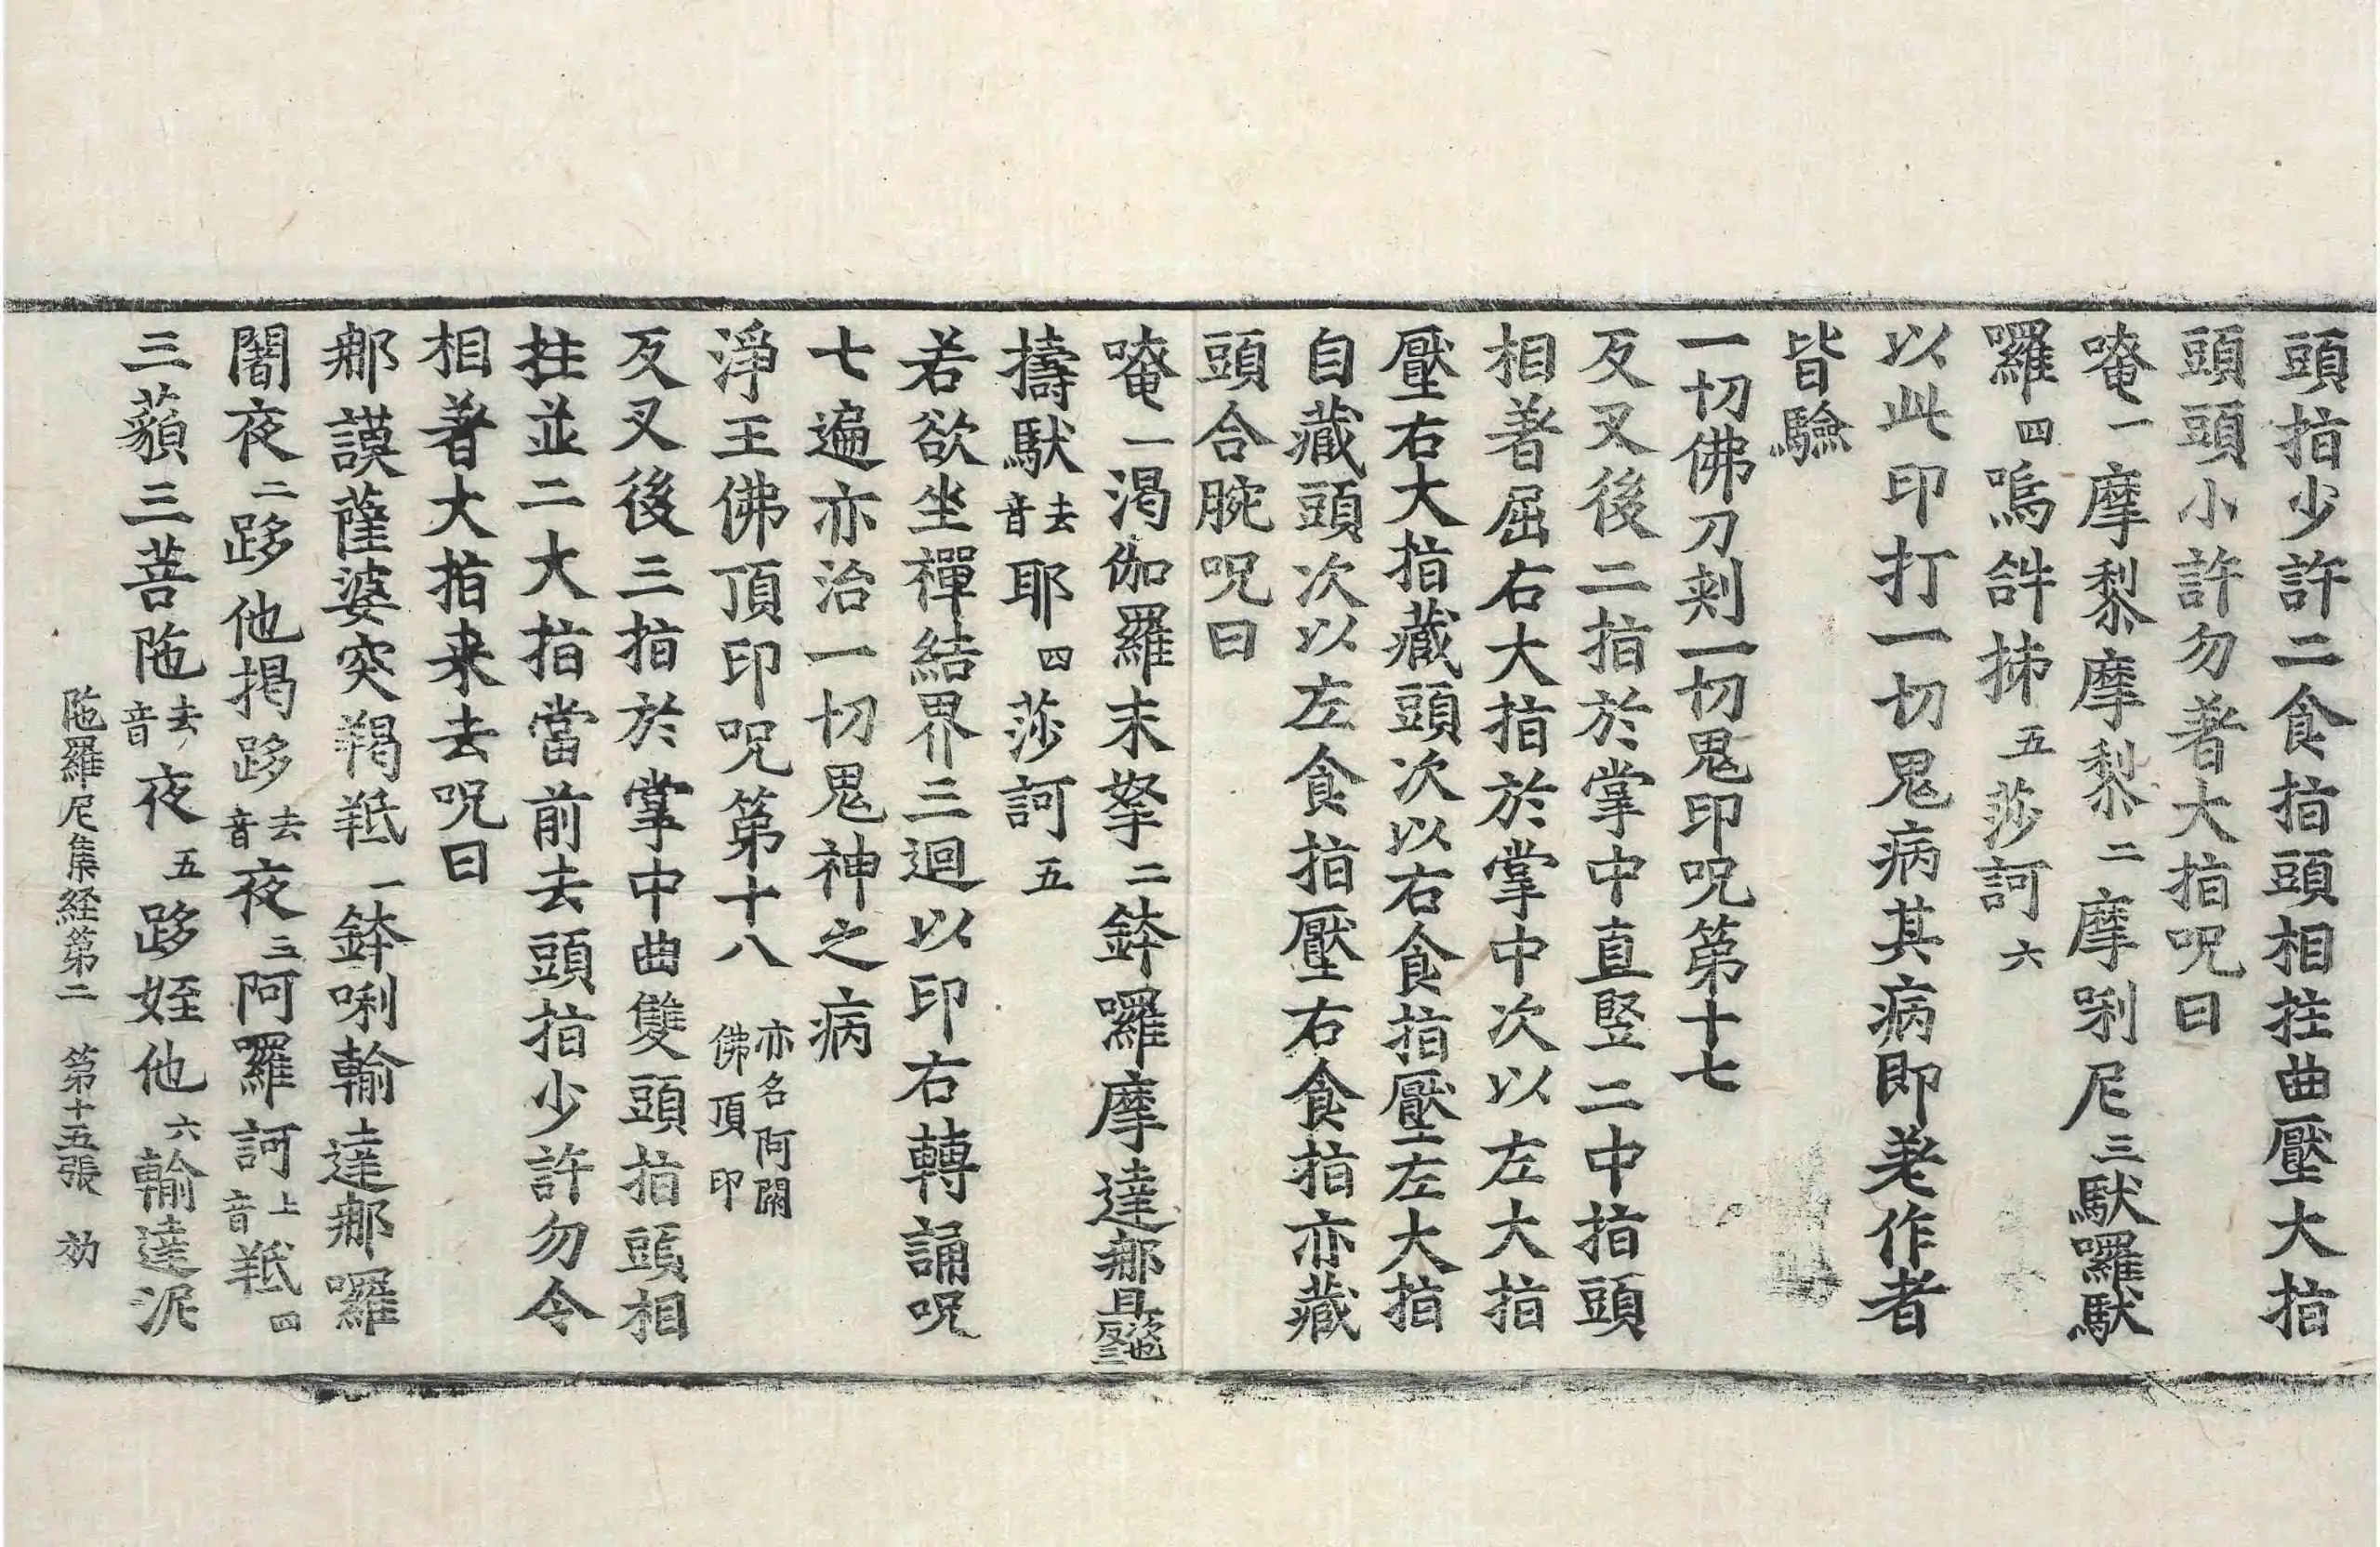 頭指少許二食指頭相拄曲壓大指
頭頭小許勿著大指呪曰
唵一摩黎摩黎二摩唎尼三馱囉馱
囉四嗚𤙖抪五莎訶六
以此印打一切鬼病其病即差作者
皆驗
一切佛刀刾一切鬼印呪第十七
反叉後二指於掌中直竪二中指頭
相著屈右大指於掌中次以左大指
壓右大指藏頭次以右食指壓左大指
自藏頭次以左食指壓右食指亦藏
頭合腕呪曰
唵一渴伽羅末拏二鉢囉摩達那
擣馱去音耶四莎訶五
若欲坐禪結界三迴以印右轉誦呪
七遍亦治一切鬼神之病
淨王佛頂印呪第十八亦名阿閦佛頂印
反叉後三指於掌中曲雙頭指頭相
拄並二大指當前去頭指少許勿令
相著大指来去呪曰
那謨薩婆突羯羝一鉢唎輸達那囉
闍夜二跢他揭跢去音夜三阿羅訶上音羝四
三藐三菩陁去音夜五跢姪他六輸達泥
陁羅尼集経第二 第十五張 効